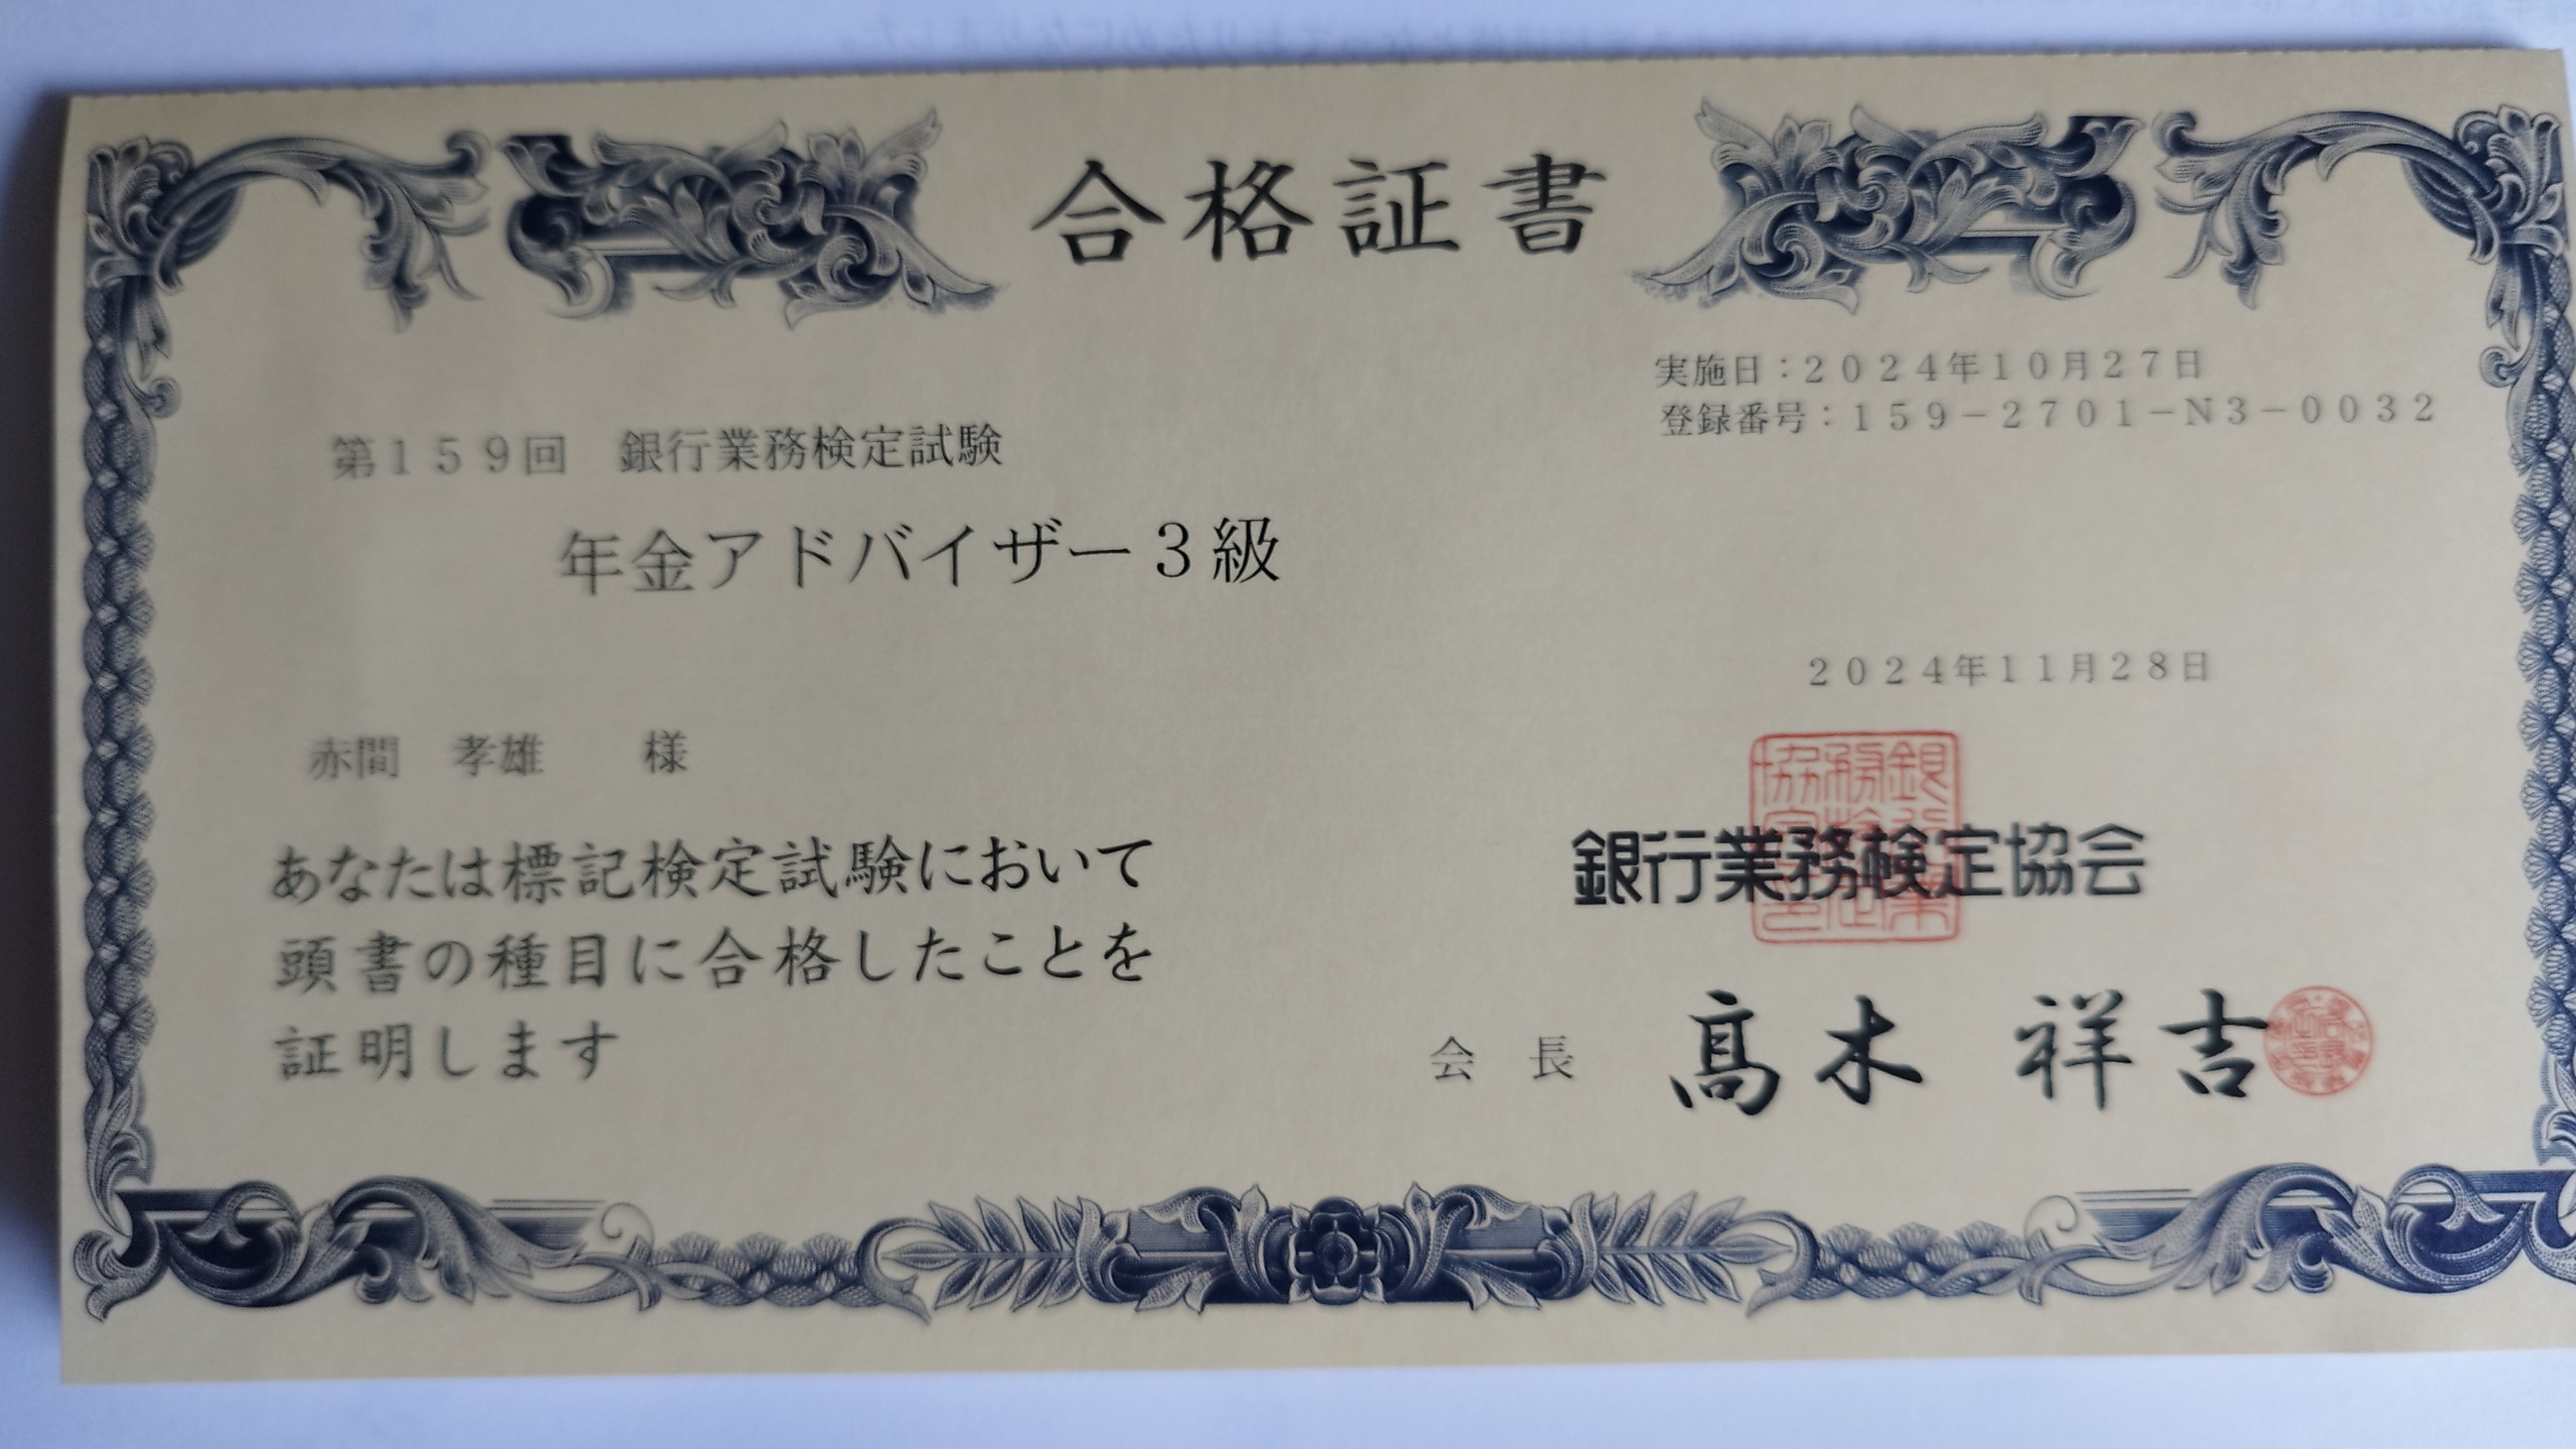 合格証書
実施日：２０２４年１０月２７日
登録番号：１５９－２７０１－Ｎ３－００３２
第１５９回　銀行業務検定試験
年金アドバイザー３級
２０２４年１１月２８日
赤間　孝雄　　様
あなたは標記検定試験において
頭書の種目に合格したことを
証明します
銀行業務検定協会
会　長　髙木　祥吉